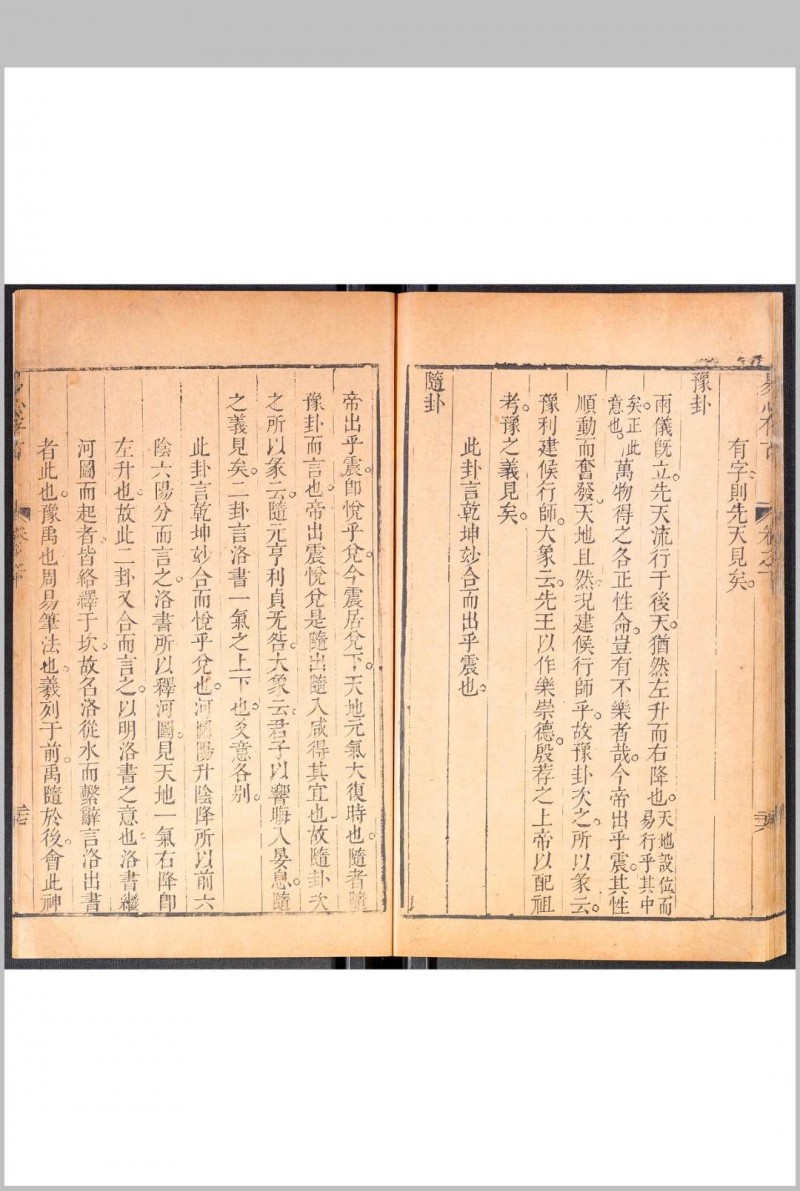 有字則先天見矣。
豫卦
兩儀旣立。先天流行于後天。猶然左升而右降也。天地設位而易行乎其中
矣。正此意也。萬物得之各正性命。豈有不樂者哉。今帝出乎震。其性
順動而奮發。天地且然。况建侯行師乎。故豫卦次之。所以彖云。
豫利建侯行師。大象云。先王以作樂崇德。殷荐之上帝以配祖
考。豫之義見矣。
此卦言乾坤玅合而出乎震也。
隨卦
帝出乎震。卽悅乎兌。今震居兌下。天地元氣大復時也。隨者隨
豫卦而言也。帝出震悅兌。是隨出隨入咸得其宜也。故隨卦次
之。所以彖云。隨元亨利貞无咎。大象云。君子以嚮晦入晏息。隨
之義見矣。二卦言洛書一氣之上下也。爻意各别。
此卦言乾坤玅合而悅乎兌也。河圖陽升陰降所以前六
陰六陽分而言之。洛書所以釋河圖。見天地一氣右降卽
左升也。故此二卦又合而言之。以明洛書之意也。洛書繼
河圖而起者。皆絡繹于坎。故名洛從水。而繫辭言洛出書
者此也。豫禹也。周易筆法也。羲列于前。禹隨於後。會此神